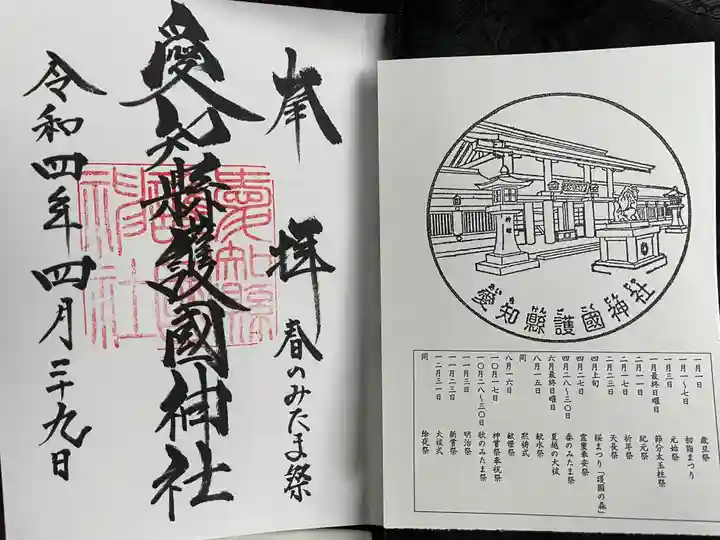 奉拝
春のみたま祭
愛知縣護國神社
令和四年四月二十九日
愛知縣護國神社
神社
愛知縣護國神社
あいちけんごこくじんじゃ
一月一日 歳旦祭
一月一~七日 初詣まつり
一月三日 元始祭
一月最終日曜日 節分太玉柱祭
二月一一日 紀元祭
二月一七日 祈年祭
二月二三日 天長祭
四月上旬 桜まつり「護國の森」
四月二七日 霊璽奉安祭
四月二八~三〇日 春のみたま祭
六月最終日曜日 夏越の大祓
八月一五日 献水祭
同 黙祷式
八月一六日 献燈祭
一〇月一七日 神嘗祭奉祝祭
一〇月二八~三〇日 秋のみたま祭
一一月三日 明治祭
一一月二三日 新嘗祭
一二月三一日 大祓式
同 除夜祭